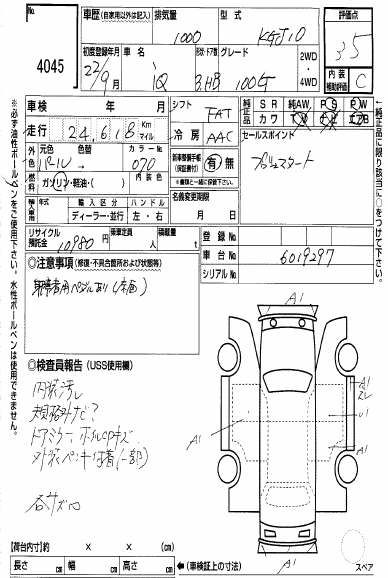 No.
4045
車歴 (自家用以外は記入)
排気量
型式
評価点
1000
KGJ10
3.5
初度登録年月
車名
ドア 形状
グレード
2WD
4WD
内装
補助評価
C
22/9月
iQ
3.HB
100G
車検 年 月
シフト
FAT
純正品
SR 純AW PS PW
カワ TV ナビ エアB
走行 24,618 Km マイル
冷房
AAC
セールスポイント
プッシュスタート
外色
元色
色替
カラーNo.
パール
070
新車整備手帳
(保証書付)
有・無
燃料
ガソリン・軽油・( )
内装色
輸入車用
輸入区分
ハンドル
ディーラー・並行
左・右
名義変更期限
月 日
リサイクル
預託金
10980円
乗車定員
人
積載量
t
登録No.
車台No.
6019297
シリアルNo.
◎注意事項 (修復・不具合箇所および状態等)
◎検査員報告 (USS使用欄)
内装汚レ
ドアミラー
各サズ
A1
A1
A1
A1
A1
A1
U1
【荷台内寸】約 × × (cm)
長さ cm
幅 cm
高さ cm
(車検証上の寸法)
スペア
※必ず油性ボールペンをご使用下さい。水性ボールペンは使用できません。
純正品に限り該当に○をつけて下さい。